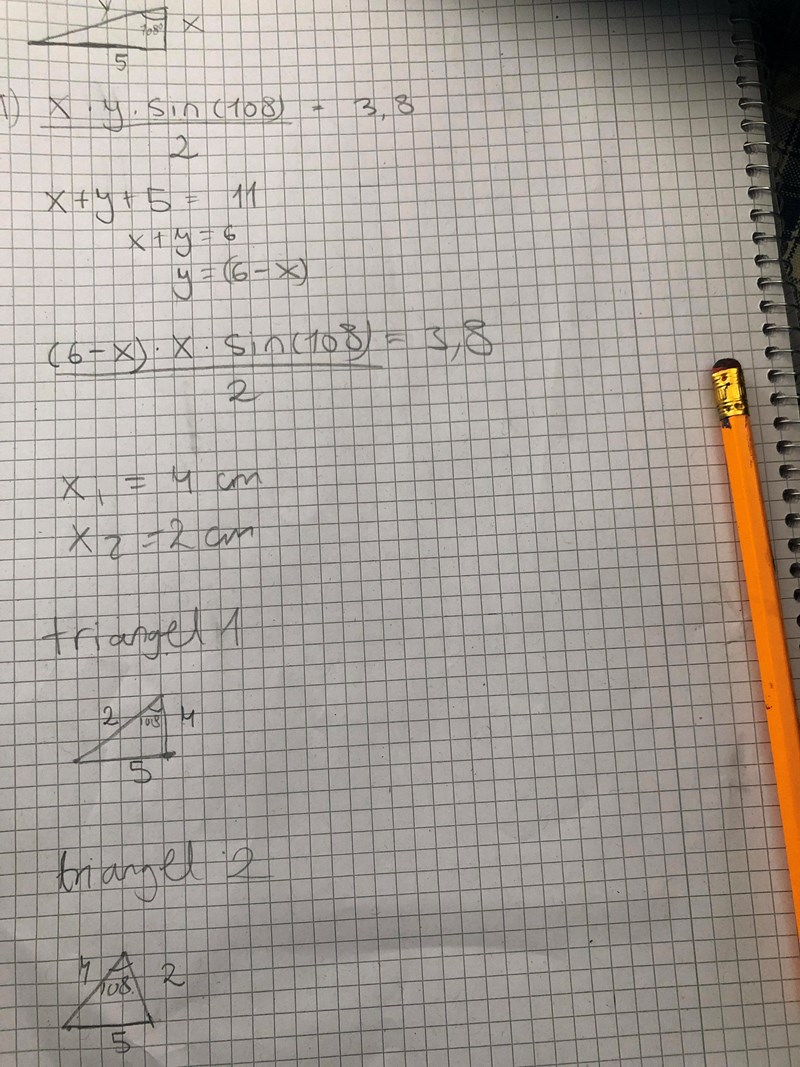 y
108°
x
5
1) x · y · sin(108) = 3,8
2
x+y+5 = 11
x+y=6
y=(6-x)
(6-x) · x · sin(108) = 3,8
2
x₁ = 4 cm
x₂ = 2 cm
triangel 1
2 108 4
5
triangel 2
4 108 2
5